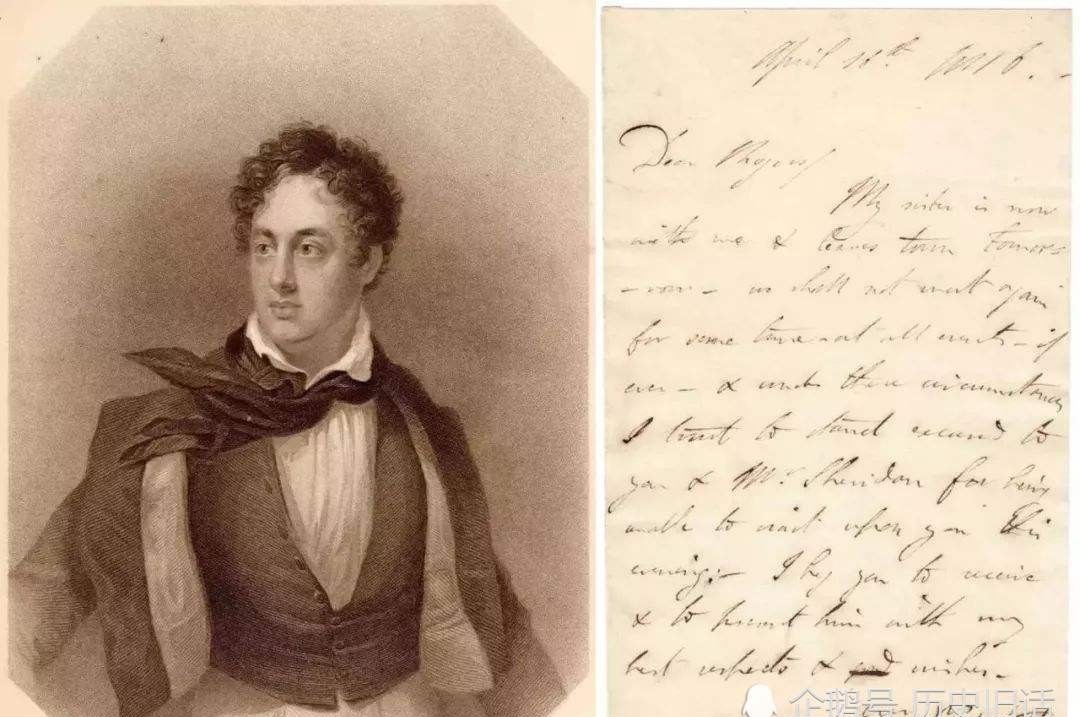 April 16th 1816.-
Dear Rogers/
My sister is now
with me & leaves town tomor-
-row- we shall not meet again
for some time - at all events - if
ever - & under these circumstances
I trust to stand excused to
you & Mr Sheridan for being
unable to wait upon you this
evening;- I beg you to receive
& to present him with my
best respects & wishes-
企鹅号 历史旧话